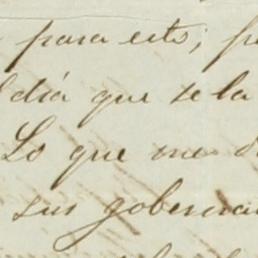 para esto; pe
dia que se la
Lo que me d
sus goberna